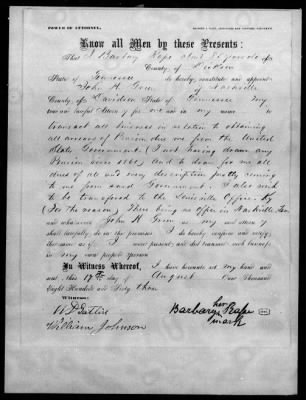 POWER OF ATTORNEY.
Know all Men by these Presents:
That I Barbary
County of Davidson
State of Tennessee do hereby constitute and appoint
John H. Green of Nashville
County of Davidson State of Tennessee my
true and lawful Attorney for me and in my name to
transact all business in relation to obtaining
all arrears of Pension due me from the United
State Government (I not having drawn any
Pension since 1861) And to draw for me all
dues of all and every description justly coming
to me from said Government. I also wish
to be transferred to the Louisville Office Ky
(For the reason) There being no Office in Nashville Ten
and whatsoever John H Green in my
shall lawfully do in the premises I do hereby confirm and ratify
the same as if I were present and did transact such business
in my own proper person
In Witness Whereof, I have hereunto set my hand and
seal this 17th day of August One Thousand
Eight Hundred and Sixty three
Witness:
William Johnson
Barbary her
mark